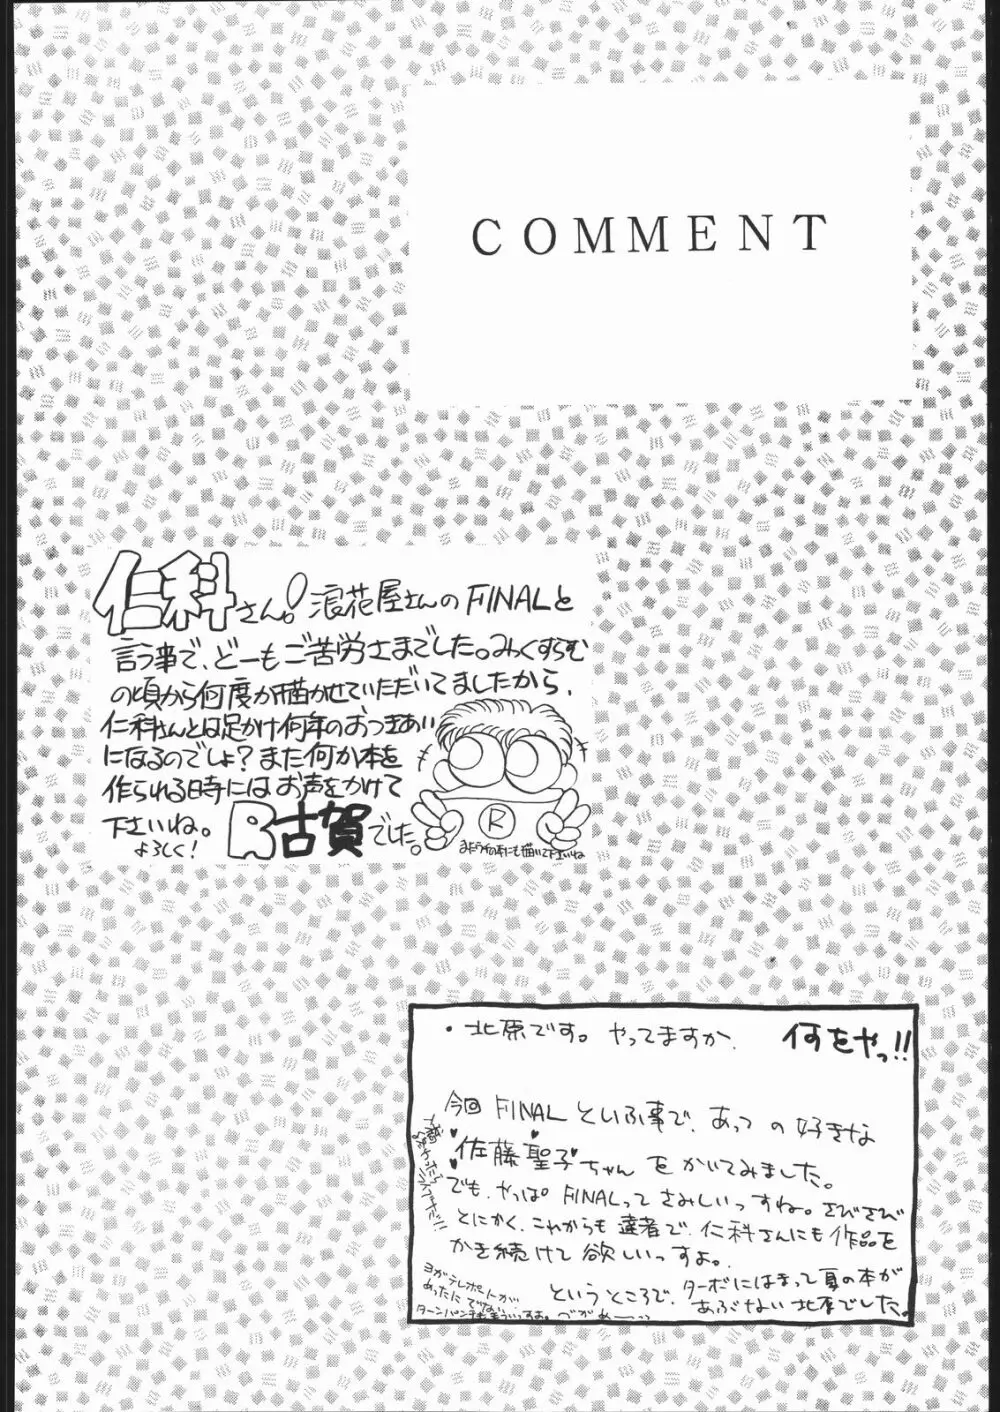 COMMENT
仁科さん!浪花屋さんのFINALと
言う事で、どーもご苦労さまでした。みっくすらむ
の頃から何度か描かせていただいてましたから、
仁科さんとは足かけ何年のおつきあい
になるのでしょ?また何か本を
作られる時にはお声をかけて
下さいね。
よろしく!
R古賀でした。
R
・北原です。やってますか. 何をやっ!!
今回 FINAL という事で、あっの好きな
佐藤聖子ちゃんをかいてみました。
でも、やっぱ。FINALって さみしいっすね。さびさび
とにかく、これからも達者で、仁科さんにも作品を
かき続けて欲しいっすよ。
というところで、ターボにはまって夏の本が
あぶない北原でした。
ヨガテレポートが